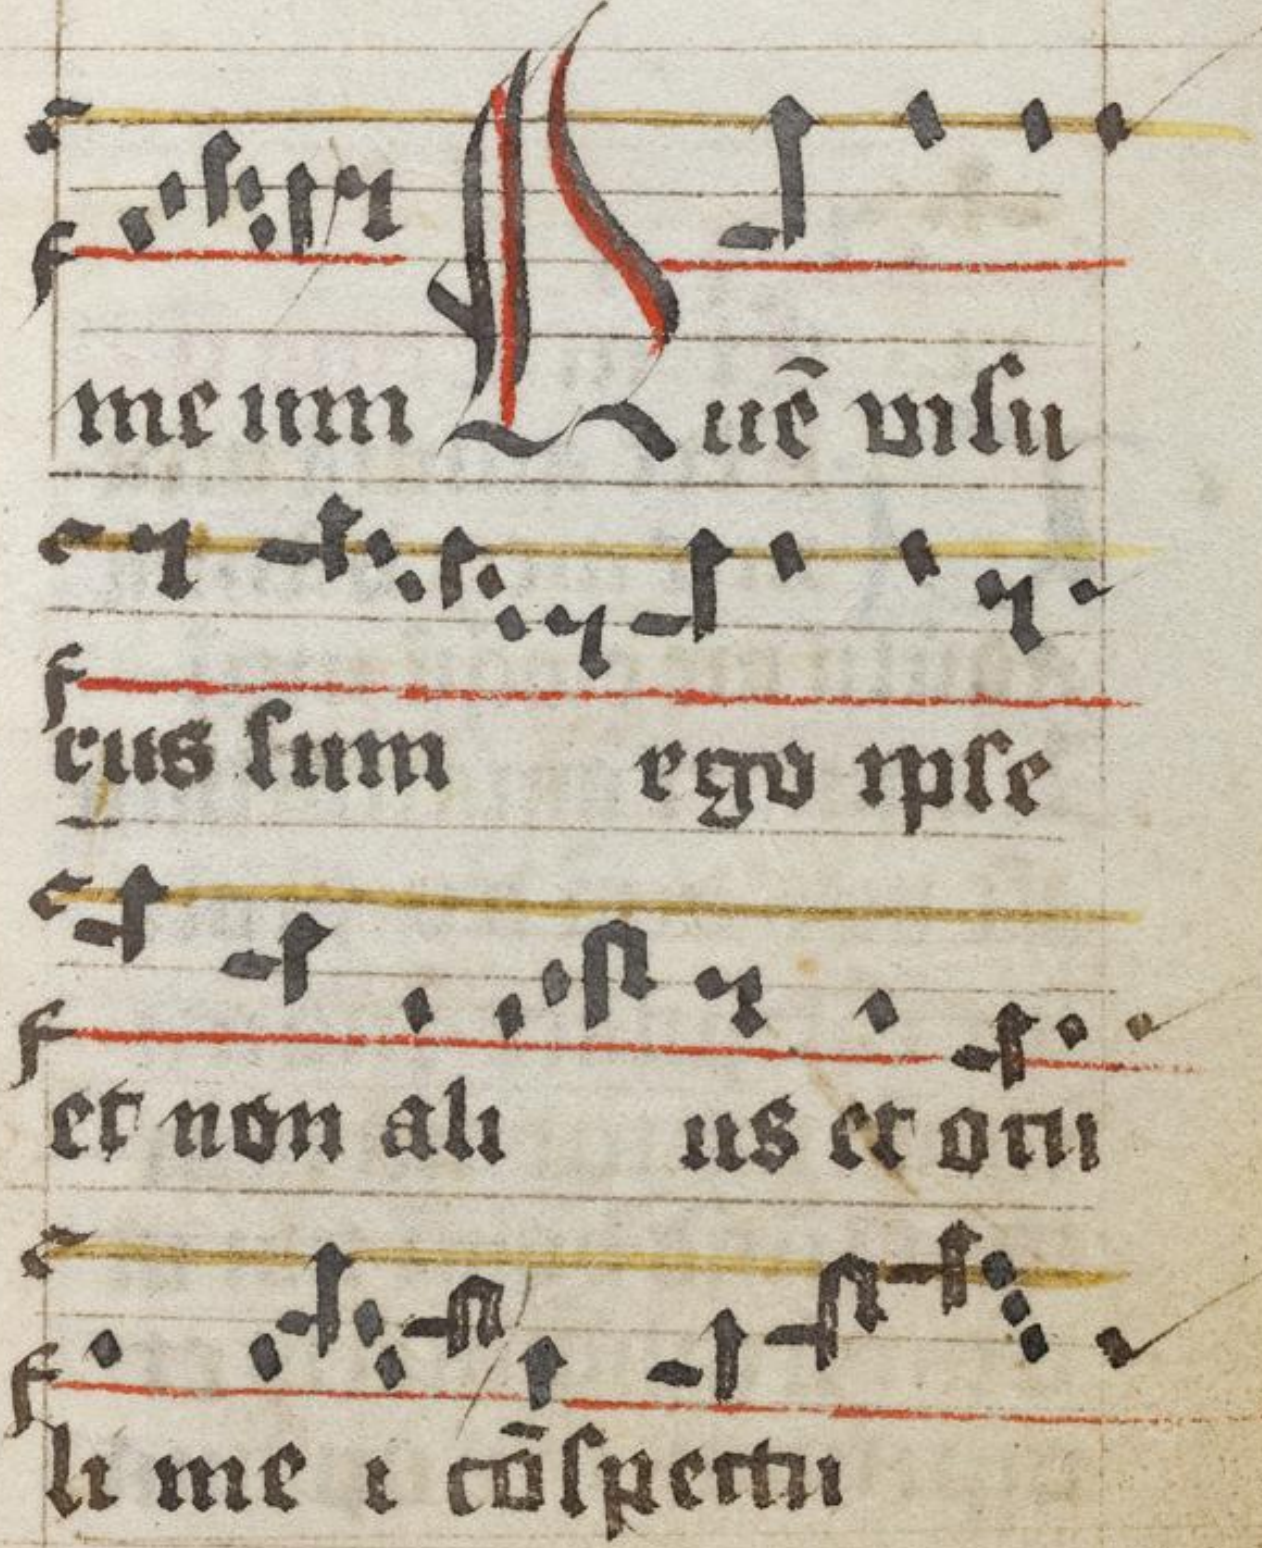 me um Quē visu
rus sum ego ipse
et non ali us et ocu
li me i cōspectu